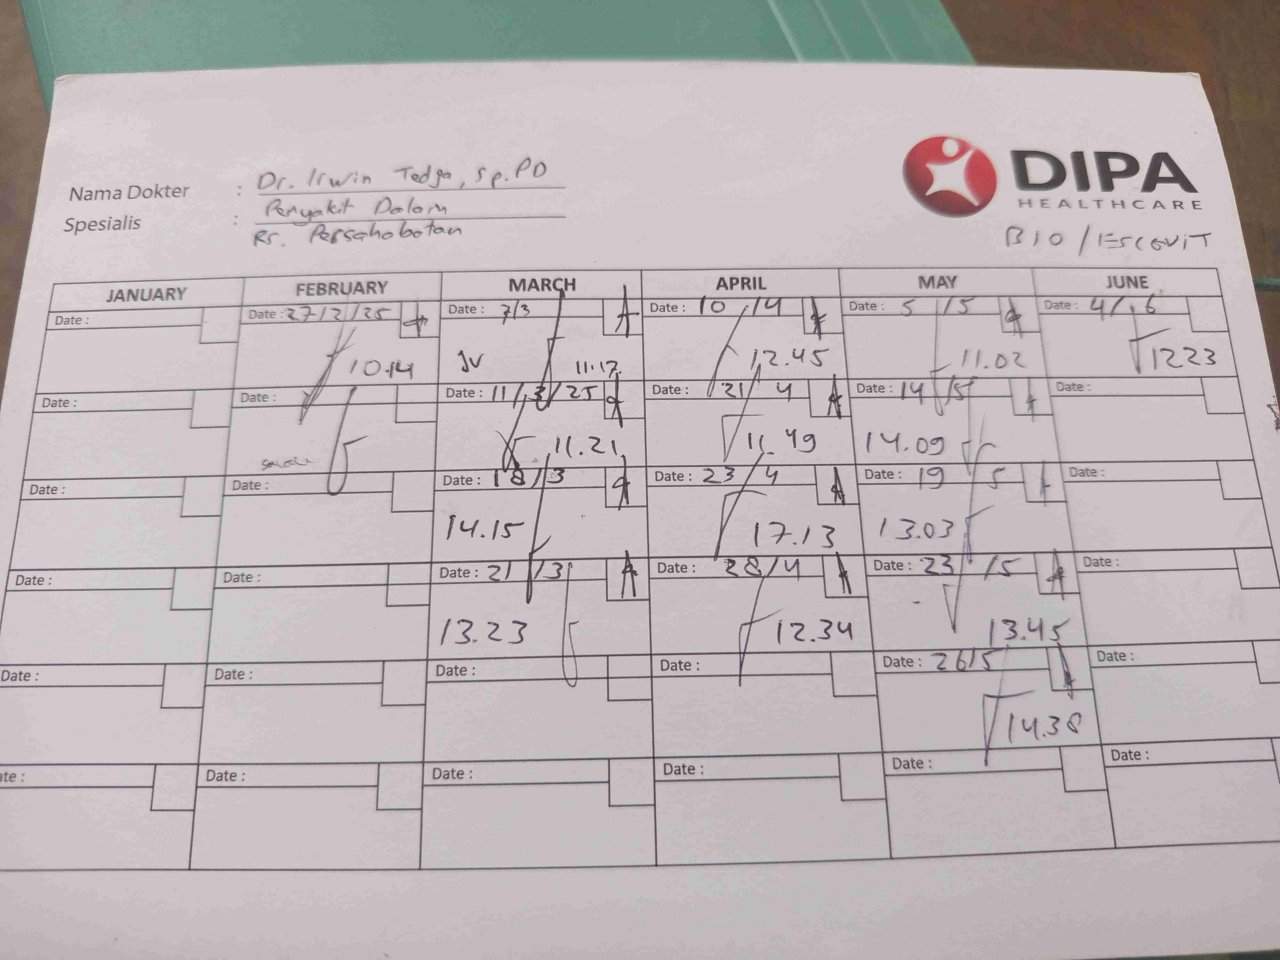 DIPA
HEALTHCARE
Nama Dokter : Dr. Irwin Tedja, Sp.PD
Spesialis : Penyakit Dalam
Rs. Persahabatan
BIO / ESCOVIT
JANUARY FEBRUARY MARCH APRIL MAY JUNE
Date : Date : 27/2/25 Date : 7/3 Date : 10/4 Date : 5/5 Date : 4/6
10.14 JV 11.17 12.45 11.02 12.23
Date : Date : Date : 11/3/25 Date : 21 4 Date : 14/5 Date :
11.21 11.49 14.09
Date : Date : Date : 18/3 Date : 23 4 Date : 19 5 Date :
14.15 17.13 13.03
Date : Date : Date : 21/3 Date : 28/4 Date : 23/5 Date :
13.23 12.34 13.45
Date : Date : Date : Date : Date : 26/5 Date :
14.38
ate : Date : Date : Date : Date : Date :